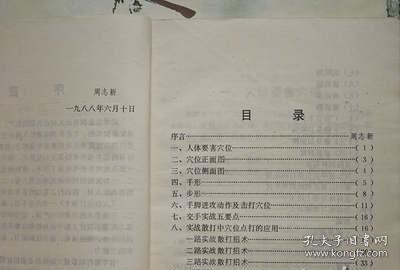 周志新
一九八八年六月十日
目 录
序言………周志新
一、人体要害穴位………( 1 )
二、穴位正面图………( 3 )
三、穴位侧面图………( 1 )
四、手形………( 5 )
五、步形………( 8 )
六、手脚进攻动作及击打穴位………(11)
七、交手实战五要点………(16)
八、实战散打中穴位点打的应用………(16)
一路实战散打招术
二路实战散打招术
三路实战散打招术………(33)
孔夫子旧书网